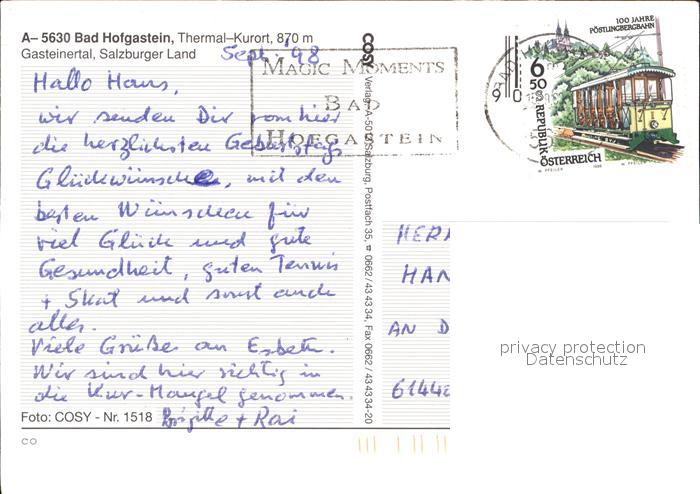 A– 5630 Bad Hofgastein, Thermal–Kurort, 870 m
Gasteinertal, Salzburger Land
Sept. '98
Hallo Hans,
wir senden Dir von hier
die herzlichsten Geburtstags
Glückwünsche, mit den
besten Wünschen für
viel Glück und gute
Gesundheit, guten Tennis
+ Skat und sonst auch
alles.
Viele Grüße an Esbeth.
Wir sind hier richtig in
die Kur-Mangel genommen.
Brigitte + Kai
Foto: COSY - Nr. 1518
CO
MAGIC MOMENTS
BAD
HOFGASTEIN
COSY Verlag, A-501 Salzburg, Postfach 35, ☎ 0662 / 43 43 34, Fax 0662 / 43 43 34-20
100 JAHRE
PÖSTLINGBERGBAHN
6
50
REPUBLIK
ÖSTERREICH
W. PFEILER 1998
HER
HAN
AN D
6144
privacy protection
Datenschutz